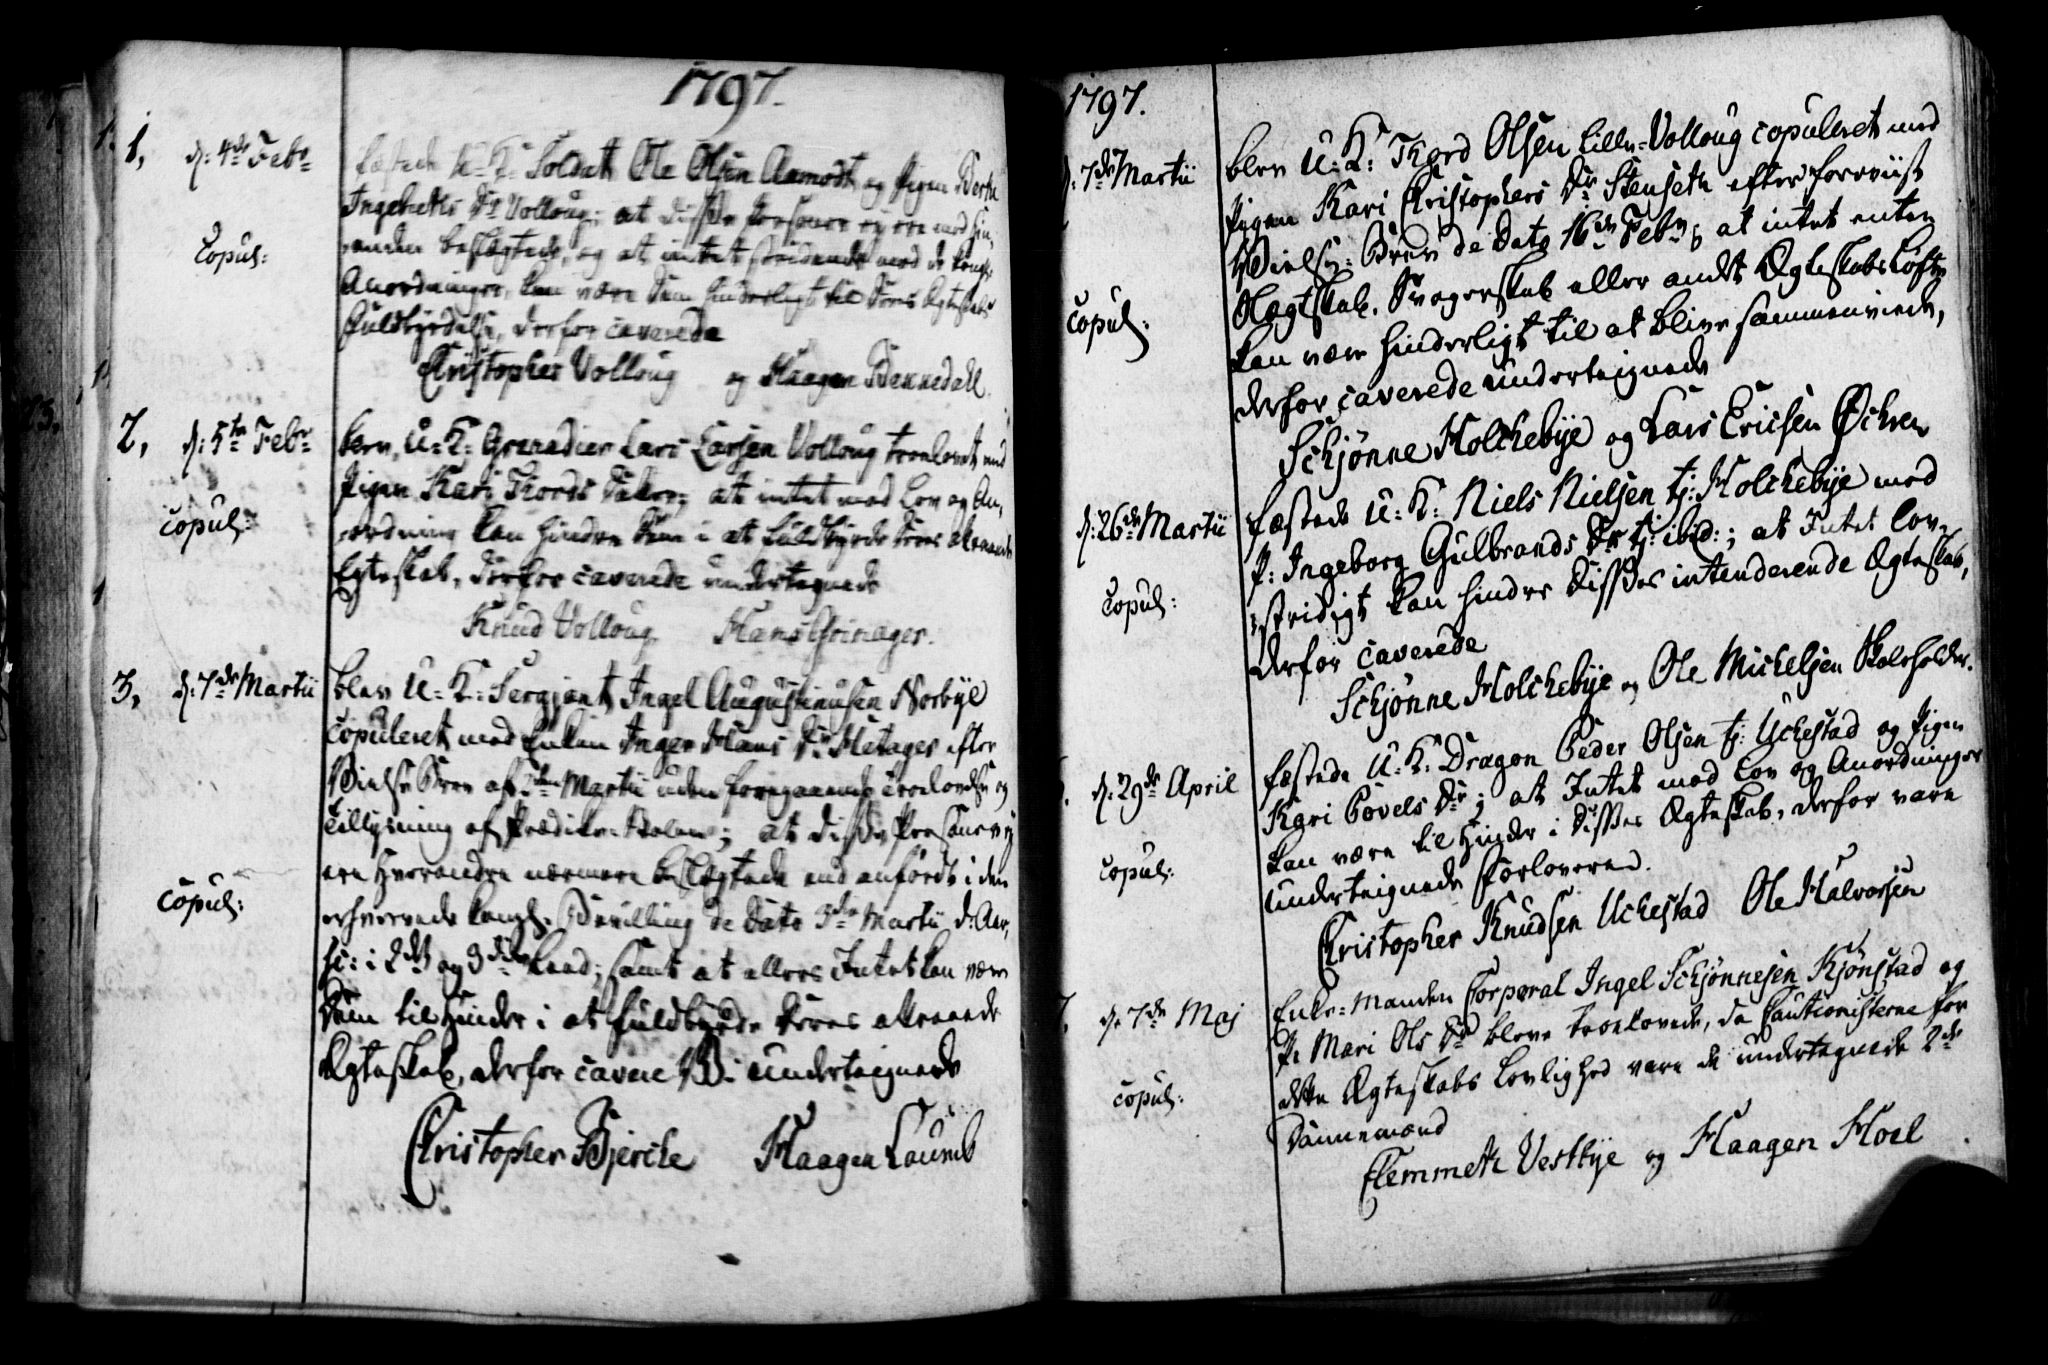 1797.
1, d: 4de Febr
Fæstede U: K: Soldat Ole Olsen Aamodt og Pigen Berthe
Ingebreths Dr Volloug; at disse Personer ej ere med hin,
Copul:
anden beslægtede, og at intet stridende mod de Kongl:
Anordninger, kan være dem hinderligt til deres Ægteskabs
Fuldbyrdelse, derfor caverede
Christopher Volloug og Haagen Bennedahl.
2, d: 5te Febr
blev U: K: Grenadier Lars Larsen Volloug trolovet med
Pigen Kari Thords Datter; at intet mod Lov og An,
copul:
ordning kan hindre dem i at fuldbyrde deres attraaede
Egteskab, derfor caverede undertegnede
Knud Volloug Hans
3, d: 7de Martii
blev U: K: Sergjant Ingel Augustinussen Norbye
copuleret med Enken Inger Hans Dr Metager efter
Vielse Brev af Martii uden foregaaende Trolovelse og
Tillysning af Prædike-Stolen; at disse Personer ej
ere hverandre nærmere beslægtede end anført i den
copul:
erhvervede Kongl. Bevilling de Dato 3de Martii d: Aar,
i 2det og 3die Leed; samt at ellers Intet kan være
Dem til Hinder i at fuldbyrde deres attraaede
Ægteskab, derfor cavere Vi undertegnede
Christopher Bjercke Haagen Laumb
1797.
d: 7de Martii
blev U: K: Thord Olsen Lille-Volloug copuleret med
Pigen Kari Christophers Dr Stenseth efter foreviist
Vielse-Brev de Dato 16de Febr; at intet enten
Slegtskab, Svogerskab eller andet Ægteskabs Løfte
copul:
kan være hinderligt til at blive sammenviede,
derfor caverede undertegnede
Schjønne Holchebye og Lars Ericsen Ochren
d: 26de Martii
fæstede U: K: Niels Nielsen tj: Holchebye med
P: Ingeborg Gulbrands Dr tj: ibid:; at Intet lov-
copul:
stridigt kan hindre disses intenderende Ægteskab,
derfor caverede
Schjønne Holchebye og Ole Michelsen Skoleholder.
d: 29de April
fæstede U: K: Dragon Peder Olsen tj: Uchestad og Pigen
Kari Povels Dr; at Intet mod Lov og Anordninger
copul:
kan være til Hinder i disses Ægteskab, derfor vare
undertegnede Forlovere.
Christopher Knudsen Uchestad Ole Halvorsen
d: 7de Maj
Enke-Manden Corporal Ingel Schjønnesen Kjønstad og
P: Mari Ols Dr bleve trolovede, da Cautionisterne for
copul:
dette Ægteskabs Lovlighed vare de undertegnede 2de
Dannemænd
Clemmeth Vestbye og Haagen Hoel